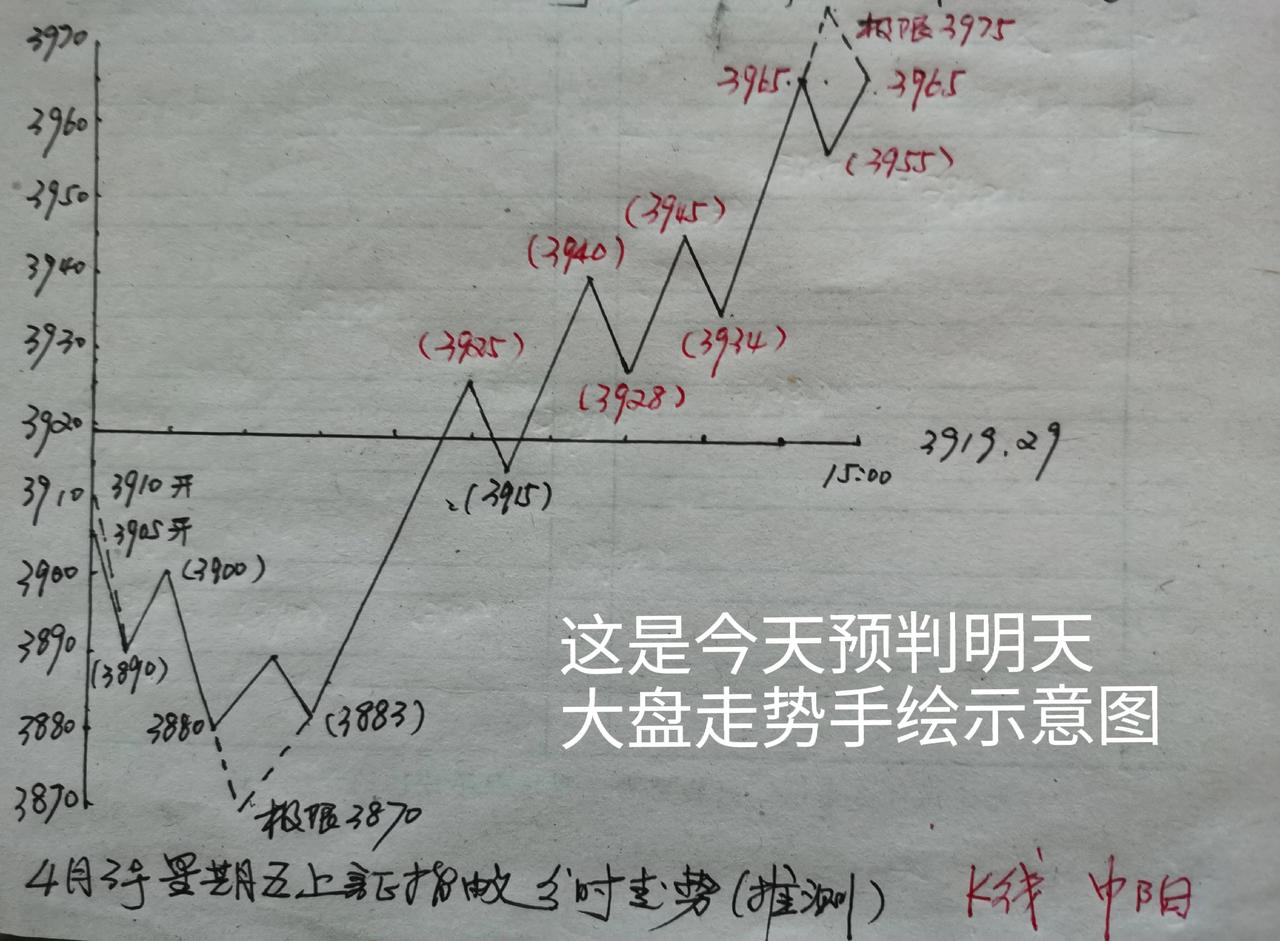 3970
极限3975
3965
3965
3960
(3955)
3950
(3945)
(3940)
3940
3930
(3925)
(3934)
(3928)
3920
3919.29
15:00
3910
3910开
(3915)
3905开
3900
(3900)
3890
(3890)
这是今天预判明天
大盘走势手绘示意图
3880
3880
(3883)
3870
极限3870
4月3号星期五上証指数分时走势(推测)
K线 中阳